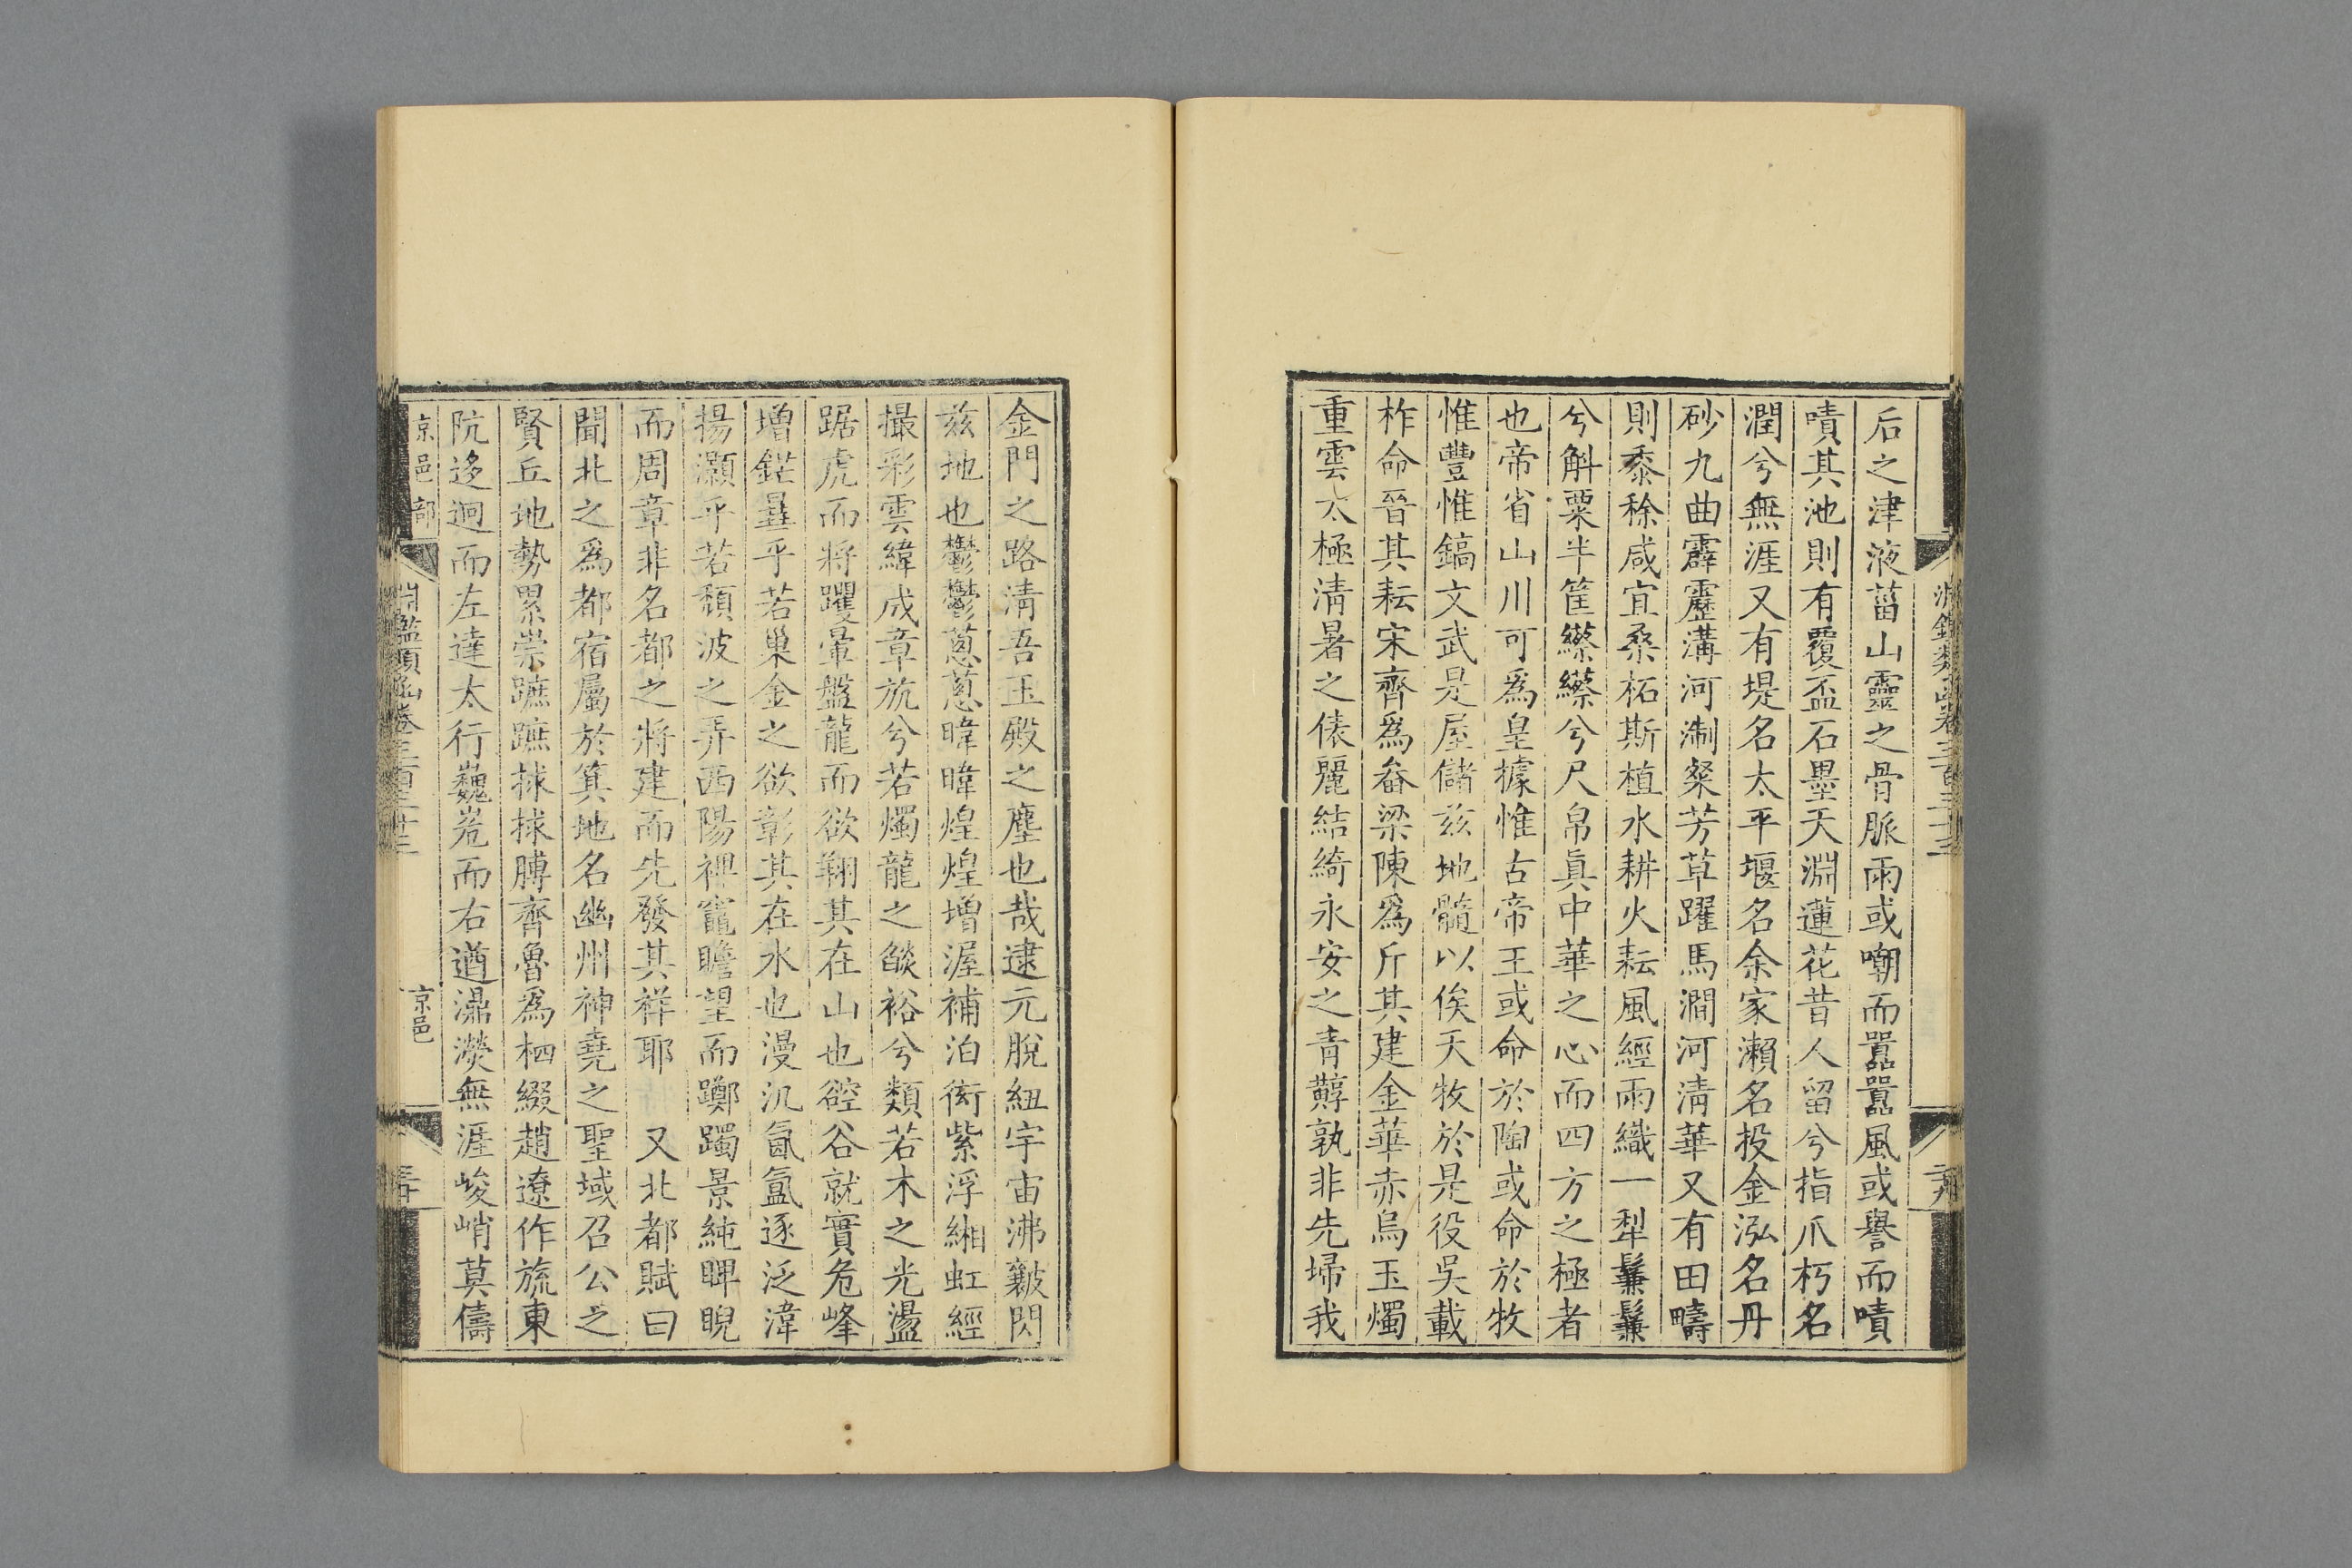 后之津液菑山靈之骨脈雨或嘲而囂囂風或譽而嘖
嘖其池則有覆盃石墨天淵蓮花昔人留兮指爪朽名
潤兮無涯又有堤名太平堰名余家瀨名投金泓名丹
砂九曲霹靂溝河淛粲芳草躍馬澗河清華又有田疇
則黍稌咸宜桑柘斯植水耕火耘風經雨織一犁鬑鬑
兮斛粟半筐繰繰兮尺帛眞中華之心而四方之極者
也帝省山川可爲皇據惟古帝王或命於陶或命於牧
惟豐惟鎬文武是屋儲茲地髓以俟天牧於是役吳載
柞命晉其耘宋齊爲畚梁陳爲斤其建金華赤烏玉燭
重雲太極清暑之俵麗結綺永安之青蔰孰非先埽我
金門之路清吾玉殿之塵也哉逮元脫紐宇宙沸皾閃
茲地也鬱鬱蔥蔥暐暐煌煌增渥補泊銜紫浮緗虹經
撮彩雲緯成章旂兮若燭龍之燄裕兮類若木之光盪
踞虎而將躩暈盤龍而欲翔其在山也硿谷就實危峰
增鋩曐乎若巢金之欲彰其在水也漫汎氤氳逐泛湋
揚灝乎若頹波之弄西陽裨竈瞻望而躑躅景純睥睨
而周章非名都之將建而先發其祥耶　又北都賦曰
聞北之爲都宿屬於箕地名幽州神堯之聖域召公之
賢丘地勢累崇蹠蹠捄捄膊齊魯爲柶綴趙遼作旒東
阬迻迥而左達太行巍峞而右遒瀑濙無涯峻峭莫儔
京邑部
淵鑑類函卷三百三十三
京邑